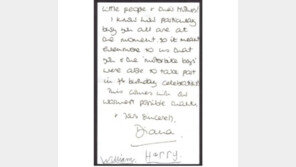 little people & their Mothers!
I know how particularly
busy you all are at
the moment so it meant
even more to us that
you & the 'motorbike boys'
were able to take part
in the birthday celebrations
This comes with our
warmest possible thanks
Yours sincerely,
Diana.
William Harry.